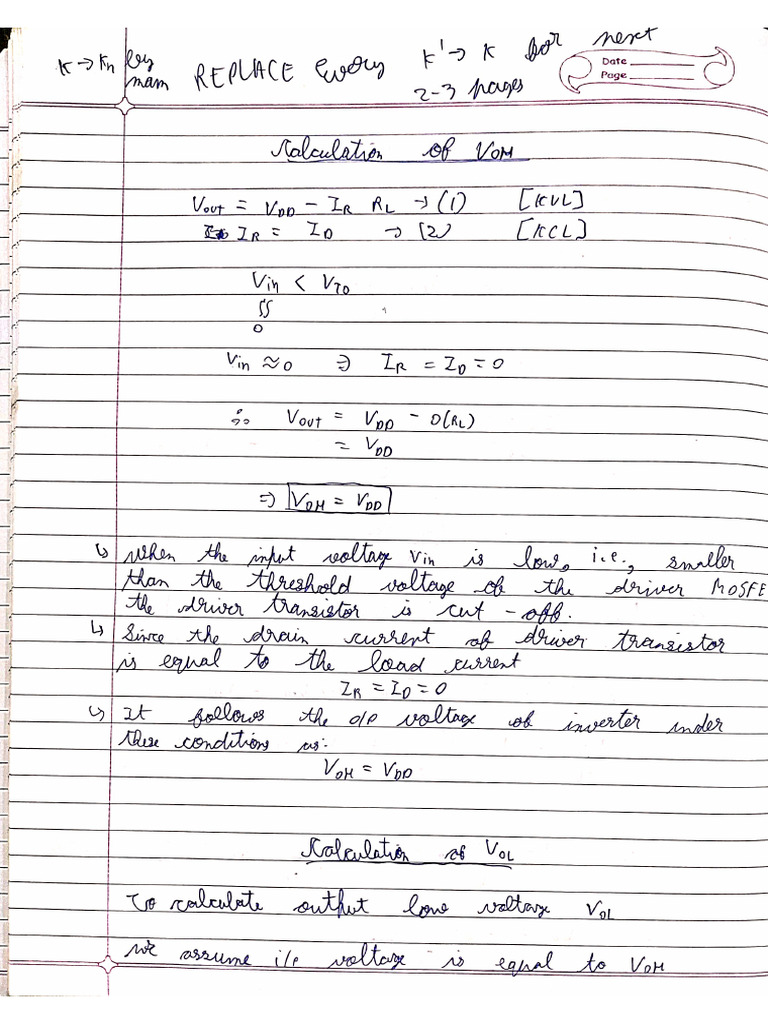 K → Kn by mam REPLACE Every K' → K for next 2-3 pages
Date
Page
Calculation of VOH
Vout = VDD - IR RL → (1) [KVL]
IR = ID → (2) [KCL]
Vin < VT0
0
Vin ≈ 0 ⇒ IR = ID = 0
∴ Vout = VDD - 0(RL)
= VDD
⇒ VOH = VDD
↳ When the input voltage Vin is low, i.e., smaller
than the threshold voltage of the driver MOSFE
the driver transistor is cut-off.
↳ Since the drain current of driver transistor
is equal to the load current
IR = ID = 0
↳ It follows the o/p voltage of inverter under
these conditions as:
VOH = VDD
Calculation of VOL
To calculate output low voltage VOL
we assume i/p voltage is equal to VOH